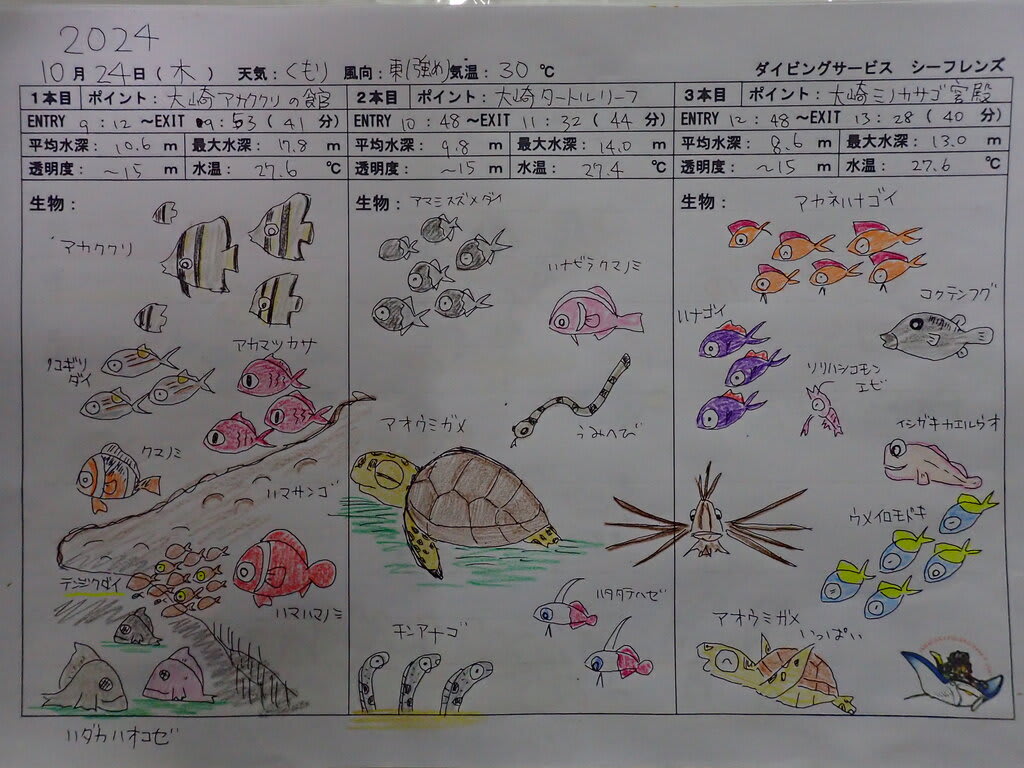 2024
10月24日(木) 天気:くもり 風向:東(強め) 気温:30℃ ダイビングサービス シーフレンズ
1本目 ポイント:大崎アカククリの館
ENTRY 9:12 ~EXIT 9:53(41分)
平均水深:10.6m 最大水深:17.8m
透明度:~15m 水温:27.6℃
生物:
アカククリ
ノコギリ
ダイ
アカマツカサ
クマノミ
ハマサンゴ
テンジクダイ
ハマクマノミ
ハダカハオコゼ
2本目 ポイント:大崎タートルリーフ
ENTRY 10:48 ~EXIT 11:32(44分)
平均水深:9.8m 最大水深:14.0m
透明度:~15m 水温:27.4℃
生物:
アマミスズメダイ
ハナビラクマノミ
うみへび
アオウミガメ
ハタタテハゼ
チンアナゴ
3本目 ポイント:大崎ミノカサゴ宮殿
ENTRY 12:48 ~EXIT 13:28(40分)
平均水深:8.6m 最大水深:13.0m
透明度:~15m 水温:27.6℃
生物:
アカネハナゴイ
コクテンフグ
ハナゴイ
ソリハシコモン
エビ
イシガキカエルウオ
ウメイロモドキ
アオウミガメ
いっぱい